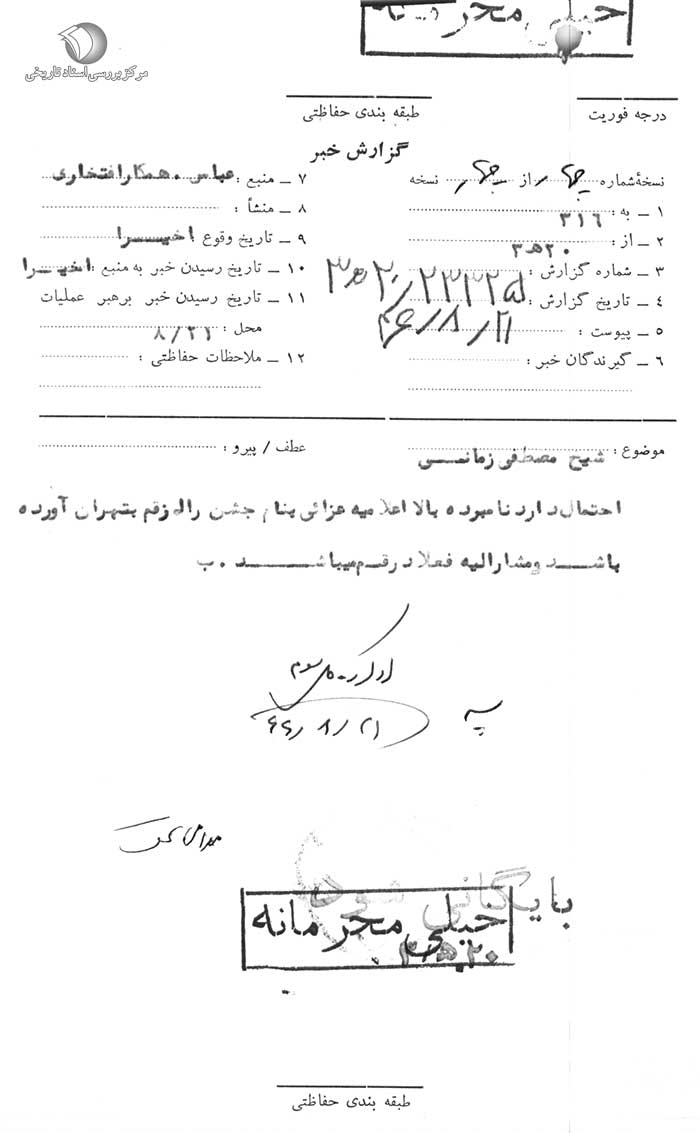 خیلی محرمانه
مرکز بررسی اسناد تاریخی
درجه فوریت
طبقه بندی حفاظتی
گزارش خبر
نسخهٔ شماره چهار از چهار نسخه
۱ ـ به : ۳۱۶
۲ ـ از : ۲۰ ه‍ ۳
۳ ـ شماره گزارش :
۴ ـ تاریخ گزارش : ۴۶/۸/۲۱
۵ ـ پیوست :
۶ ـ گیرندگان خبر :
۷ ـ منبع : عباس . همکار افتخاری
۸ ـ منشأ :
۹ ـ تاریخ وقوع اخیرا
۱۰ ـ تاریخ رسیدن خبر به منبع : اخیرا
۱۱ ـ تاریخ رسیدن خبر برهبر عملیات
محل : ۸/۲۱
۱۲ ـ ملاحظات حفاظتی :
موضوع : شیخ مصطفی زمانی
عطف / پیرو :
احتمال دارد نامبرده بالا اعلامیه عزائی بنام جشن را از قم بتهران آورده
باشد و مشارالیه فعلا در قم میباشد . ب
اداره کل سوم
۴۶/۸/۲۱
بایگانی شود
خیلی محرمانه
۲۰ ه‍ ۳
طبقه بندی حفاظتی